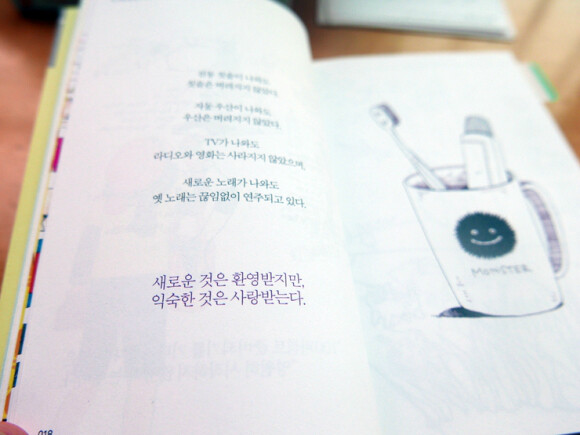 전동 칫솔이 나와도
칫솔은 버려지지 않았다.
자동 우산이 나와도
우산은 버려지지 않았다.
TV가 나와도
라디오와 영화는 사라지지 않았으며,
새로운 노래가 나와도
옛 노래는 끊임없이 연주되고 있다.
새로운 것은 환영받지만,
익숙한 것은 사랑받는다.
018
MONSTER